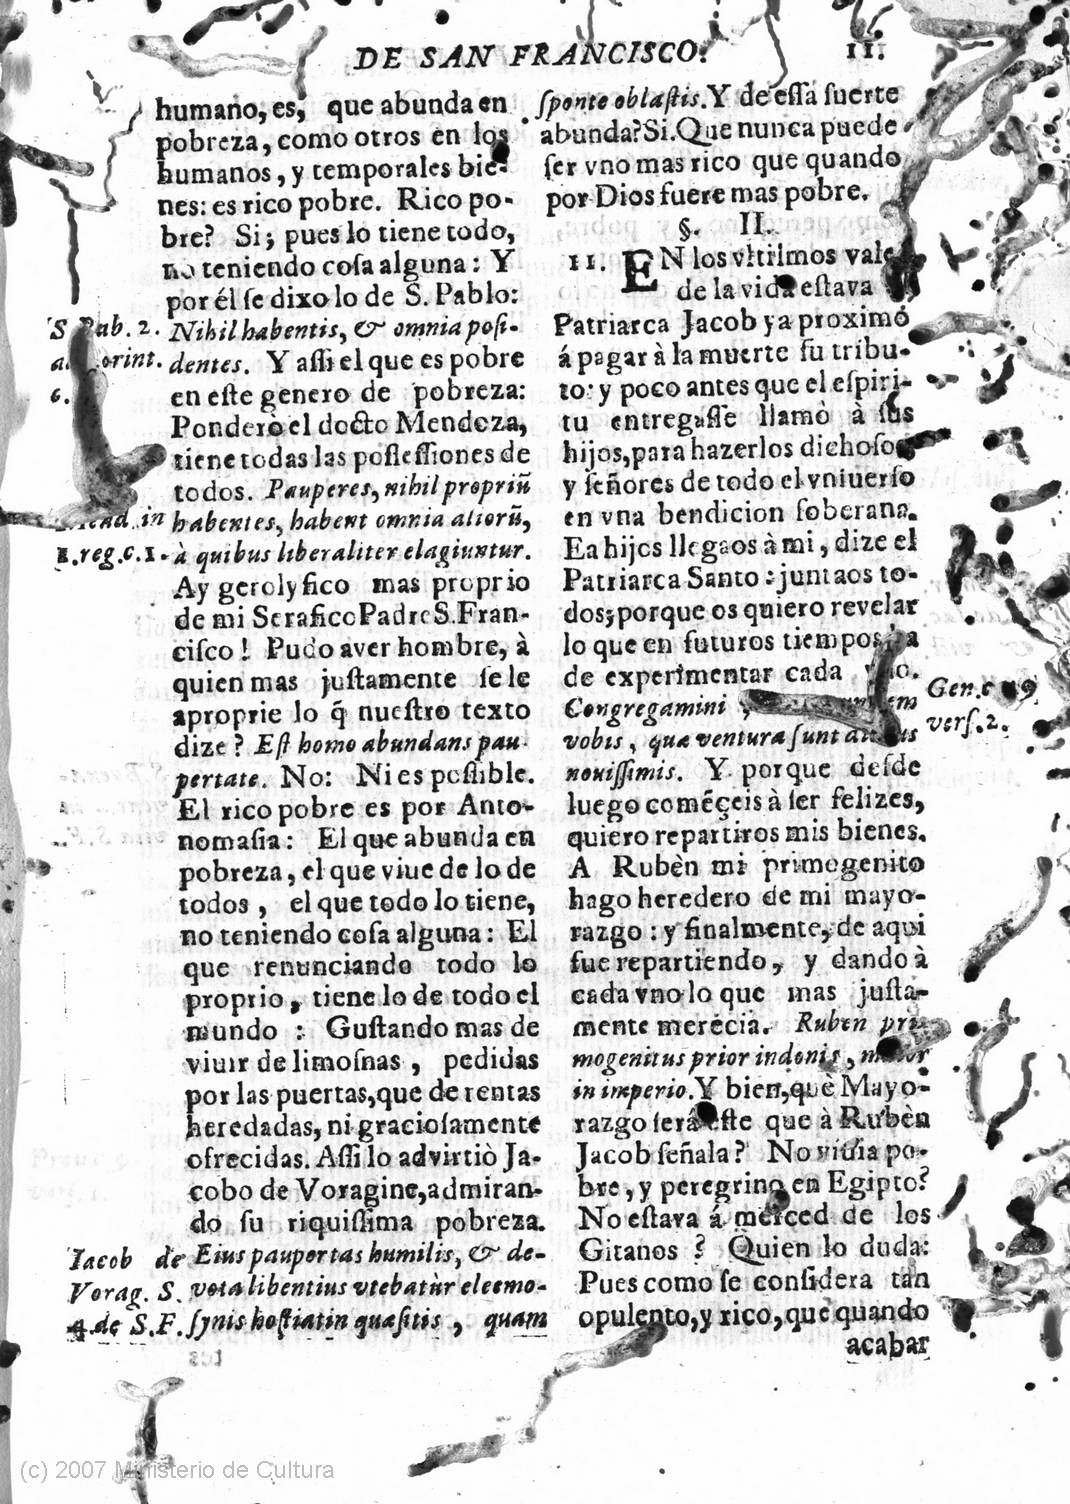 DE SAN FRANCISCO. 11.
humano, es, que abunda en
pobreza, como otros en los
humanos, y temporales bie-
nes: es rico pobre. Rico po-
bre? Si; pues lo tiene todo,
no teniendo cosa alguna: Y
por él se dixo lo de S. Pablo:
Nihil habentis, & omnia posi-
dentes. Y assi el que es pobre
en este genero de pobreza:
Ponderò el docto Mendoza,
tiene todas las possessiones de
todos. Pauperes, nihil propriũ
habentes, habent omnia aliorũ,
a quibus liberaliter elagiuntur.
Ay gerolyfico mas proprio
de mi Serafico Padre S. Fran-
cisco! Pudo aver hombre, à
quien mas justamente se le
aproprie lo q̃ nuestro texto
dize? Est homo abundans pau-
pertate. No: Ni es possible.
El rico pobre es por Anto-
nomasia: El que abunda en
pobreza, el que viue de lo de
todos, el que todo lo tiene,
no teniendo cosa alguna: El
que renunciando todo lo
proprio, tiene lo de todo el
mundo: Gustando mas de
viuir de limosnas, pedidas
por las puertas, que de rentas
heredadas, ni graciosamente
ofrecidas. Assi lo advirtiò Ja-
cobo de Voragine, admiran-
do su riquissima pobreza.
Eius paupertas humilis, & de-
vota libentius vtebatur eleemo-
synis hostiatin quæsitis, quam
S. Pab. 2.
Corint.
6.
Mend. in
1. reg. c. 1.
Iacob de
Vorag. S.
4. de S. F.
sponte oblastis. Y de essa suerte
abunda? Si. Que nunca puede
ser vno mas rico que quando
por Dios fuere mas pobre.
§. II.
11. EN los vltrimos vale
de la vida estava
Patriarca Jacob ya proximó
á pagar à la muerte su tribu-
to: y poco antes que el espiri-
tu entregasse llamò à sus
hijos, para hazerlos dichosos
y señores de todo el vniuerso
en vna bendicion soberana.
Ea hijos llegaos à mi, dize el
Patriarca Santo: juntaos to-
dos; porque os quiero revelar
lo que en futuros tiempos ha
de experimentar cada vno.
Congregamini,
vobis, quæ ventura sunt
nouissimis. Y porque desde
luego coméçeis à ser felizes,
quiero repartiros mis bienes.
A Rubèn mi primogenito
hago heredero de mi mayo-
razgo: y finalmente, de aqui
fue repartiendo, y dando à
cada vno lo que mas justa-
mente merecia. Ruben pri-
mogenitus prior in donis, maior
in imperio. Y bien, què Mayo-
razgo serà este que à Rubèn
Jacob señala? No viuia po-
bre, y peregrino en Egipto?
No estava á merced de los
Gitanos? Quien lo duda:
Pues como se considera tan
opulento, y rico, que quando
acabar
Gen. c. 49
vers. 2.
(c) 2007 Ministerio de Cultura